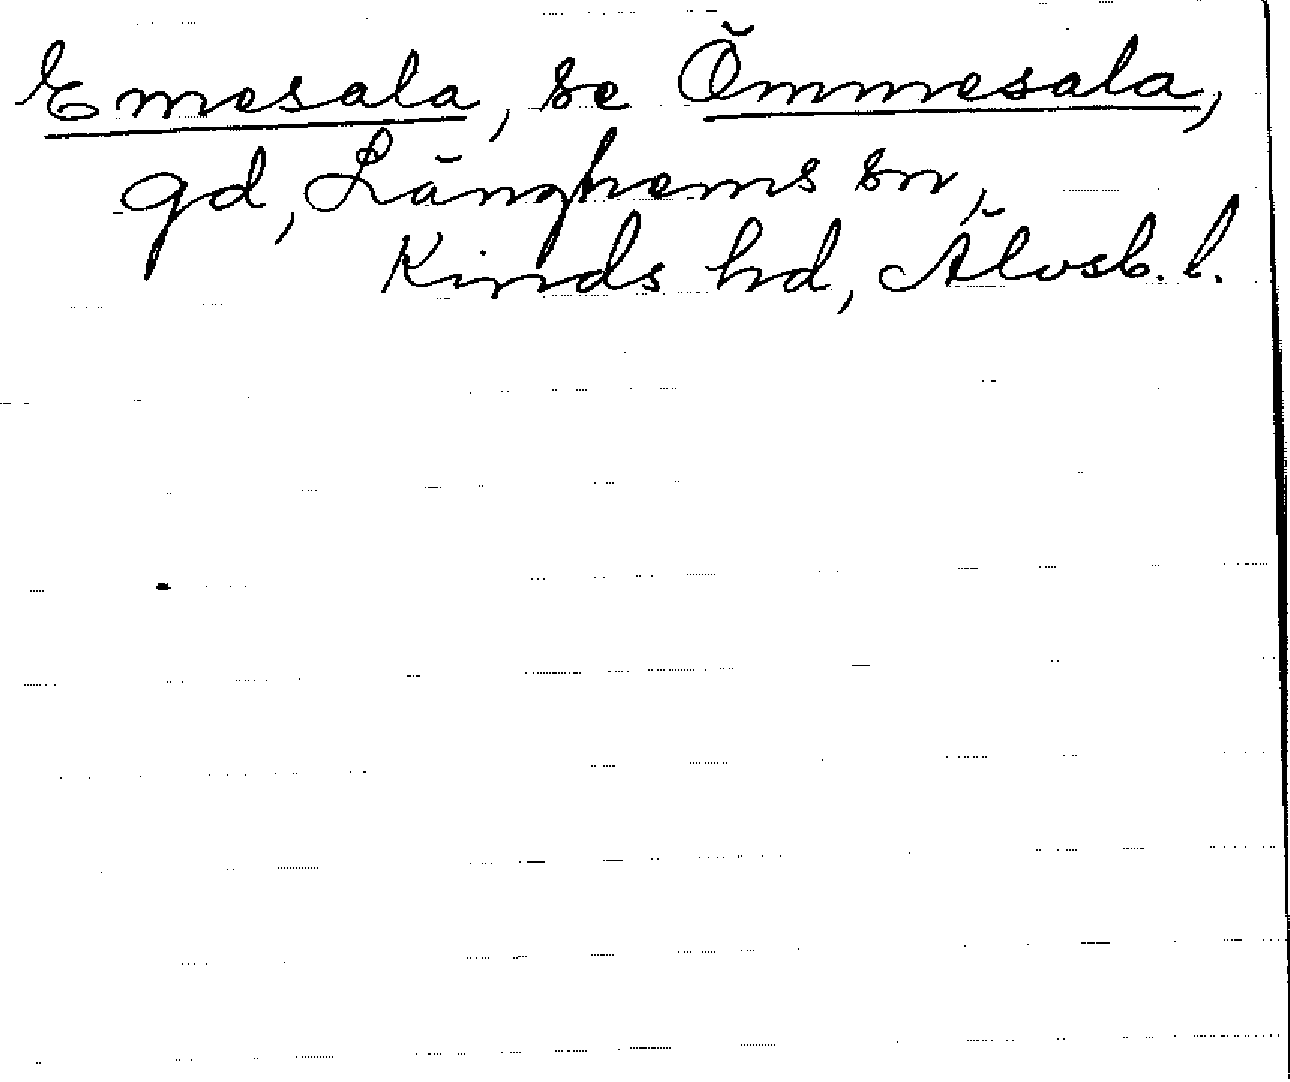 Emesala, se Ömmesala,
gd, Länghems sn,
Kinds hd, Älvsb. l.